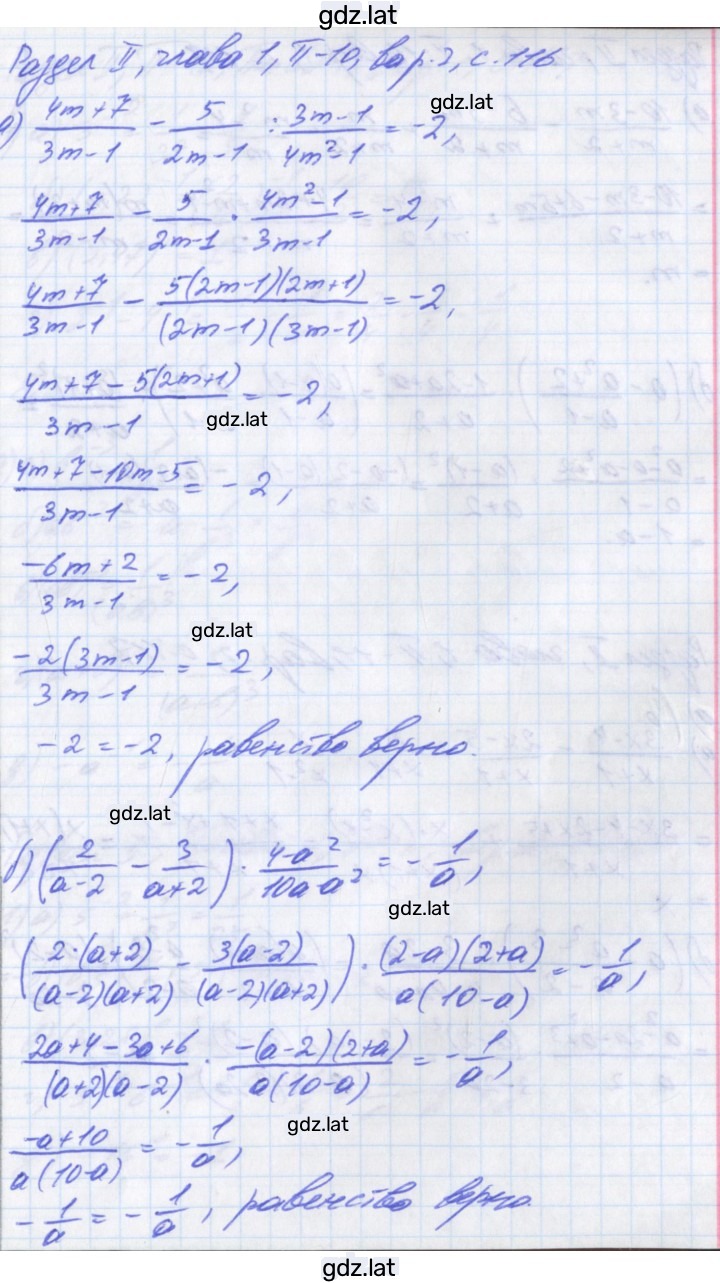 gdz.lat
Раздел II, глава 1, П-10, вар. 2, с. 116
gdz.lat
а) (4m+7)/(3m-1) - 5/(2m-1) : (3m-1)/(4m²-1) = -2,
(4m+7)/(3m-1) - 5/(2m-1) · (4m²-1)/(3m-1) = -2,
(4m+7)/(3m-1) - (5(2m-1)(2m+1))/((2m-1)(3m-1)) = -2,
(4m+7-5(2m+1))/(3m-1) = -2,
gdz.lat
(4m+7-10m-5)/(3m-1) = -2,
(-6m+2)/(3m-1) = -2,
gdz.lat
(-2(3m-1))/(3m-1) = -2,
-2 = -2, равенство верно.
gdz.lat
б) (2/(a-2) - 3/(a+2)) · (4-a²)/(10a-a²) = -1/a,
gdz.lat
((2·(a+2))/((a-2)(a+2)) - (3(a-2))/((a-2)(a+2))) · ((2-a)(2+a))/(a(10-a)) = -1/a,
(2a+4-3a+6)/((a+2)(a-2)) · (-(a-2)(2+a))/(a(10-a)) = -1/a,
gdz.lat
(-a+10)/(a(10-a)) = -1/a,
-1/a = -1/a, равенство верно.
gdz.lat